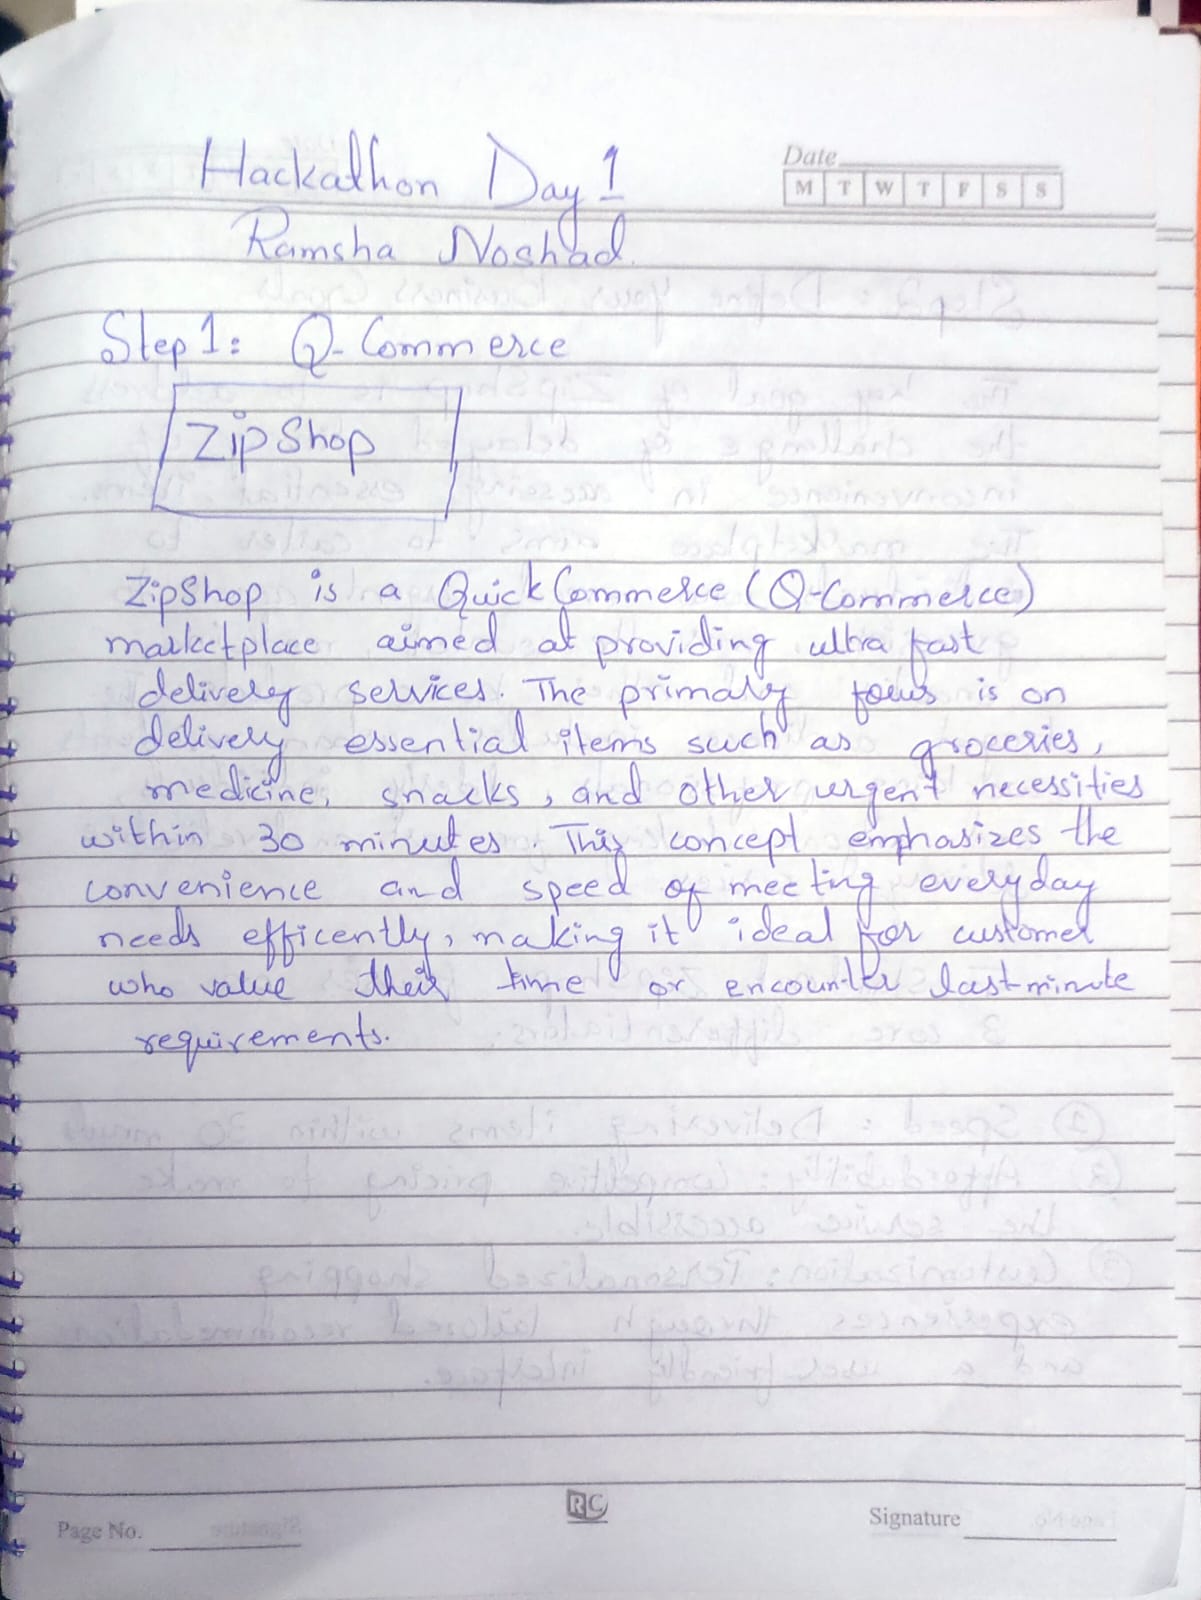 Hackathon Day 1
Date
M T W T F S S
Ramsha Noshad.
Step 1: Q-Commerce
ZipShop
ZipShop is a Quick Commerce (Q-Commerce)
marketplace aimed at providing ultra fast
delivery services. The primary focus is on
delivery essential items such as groceries,
medicine, snacks, and other urgent necessities
within 30 minutes. This concept emphasizes the
convenience and speed of meeting everyday
needs efficently, making it ideal for customer
who value their time or encounter last minute
requirements.
RC
Page No.
Signature